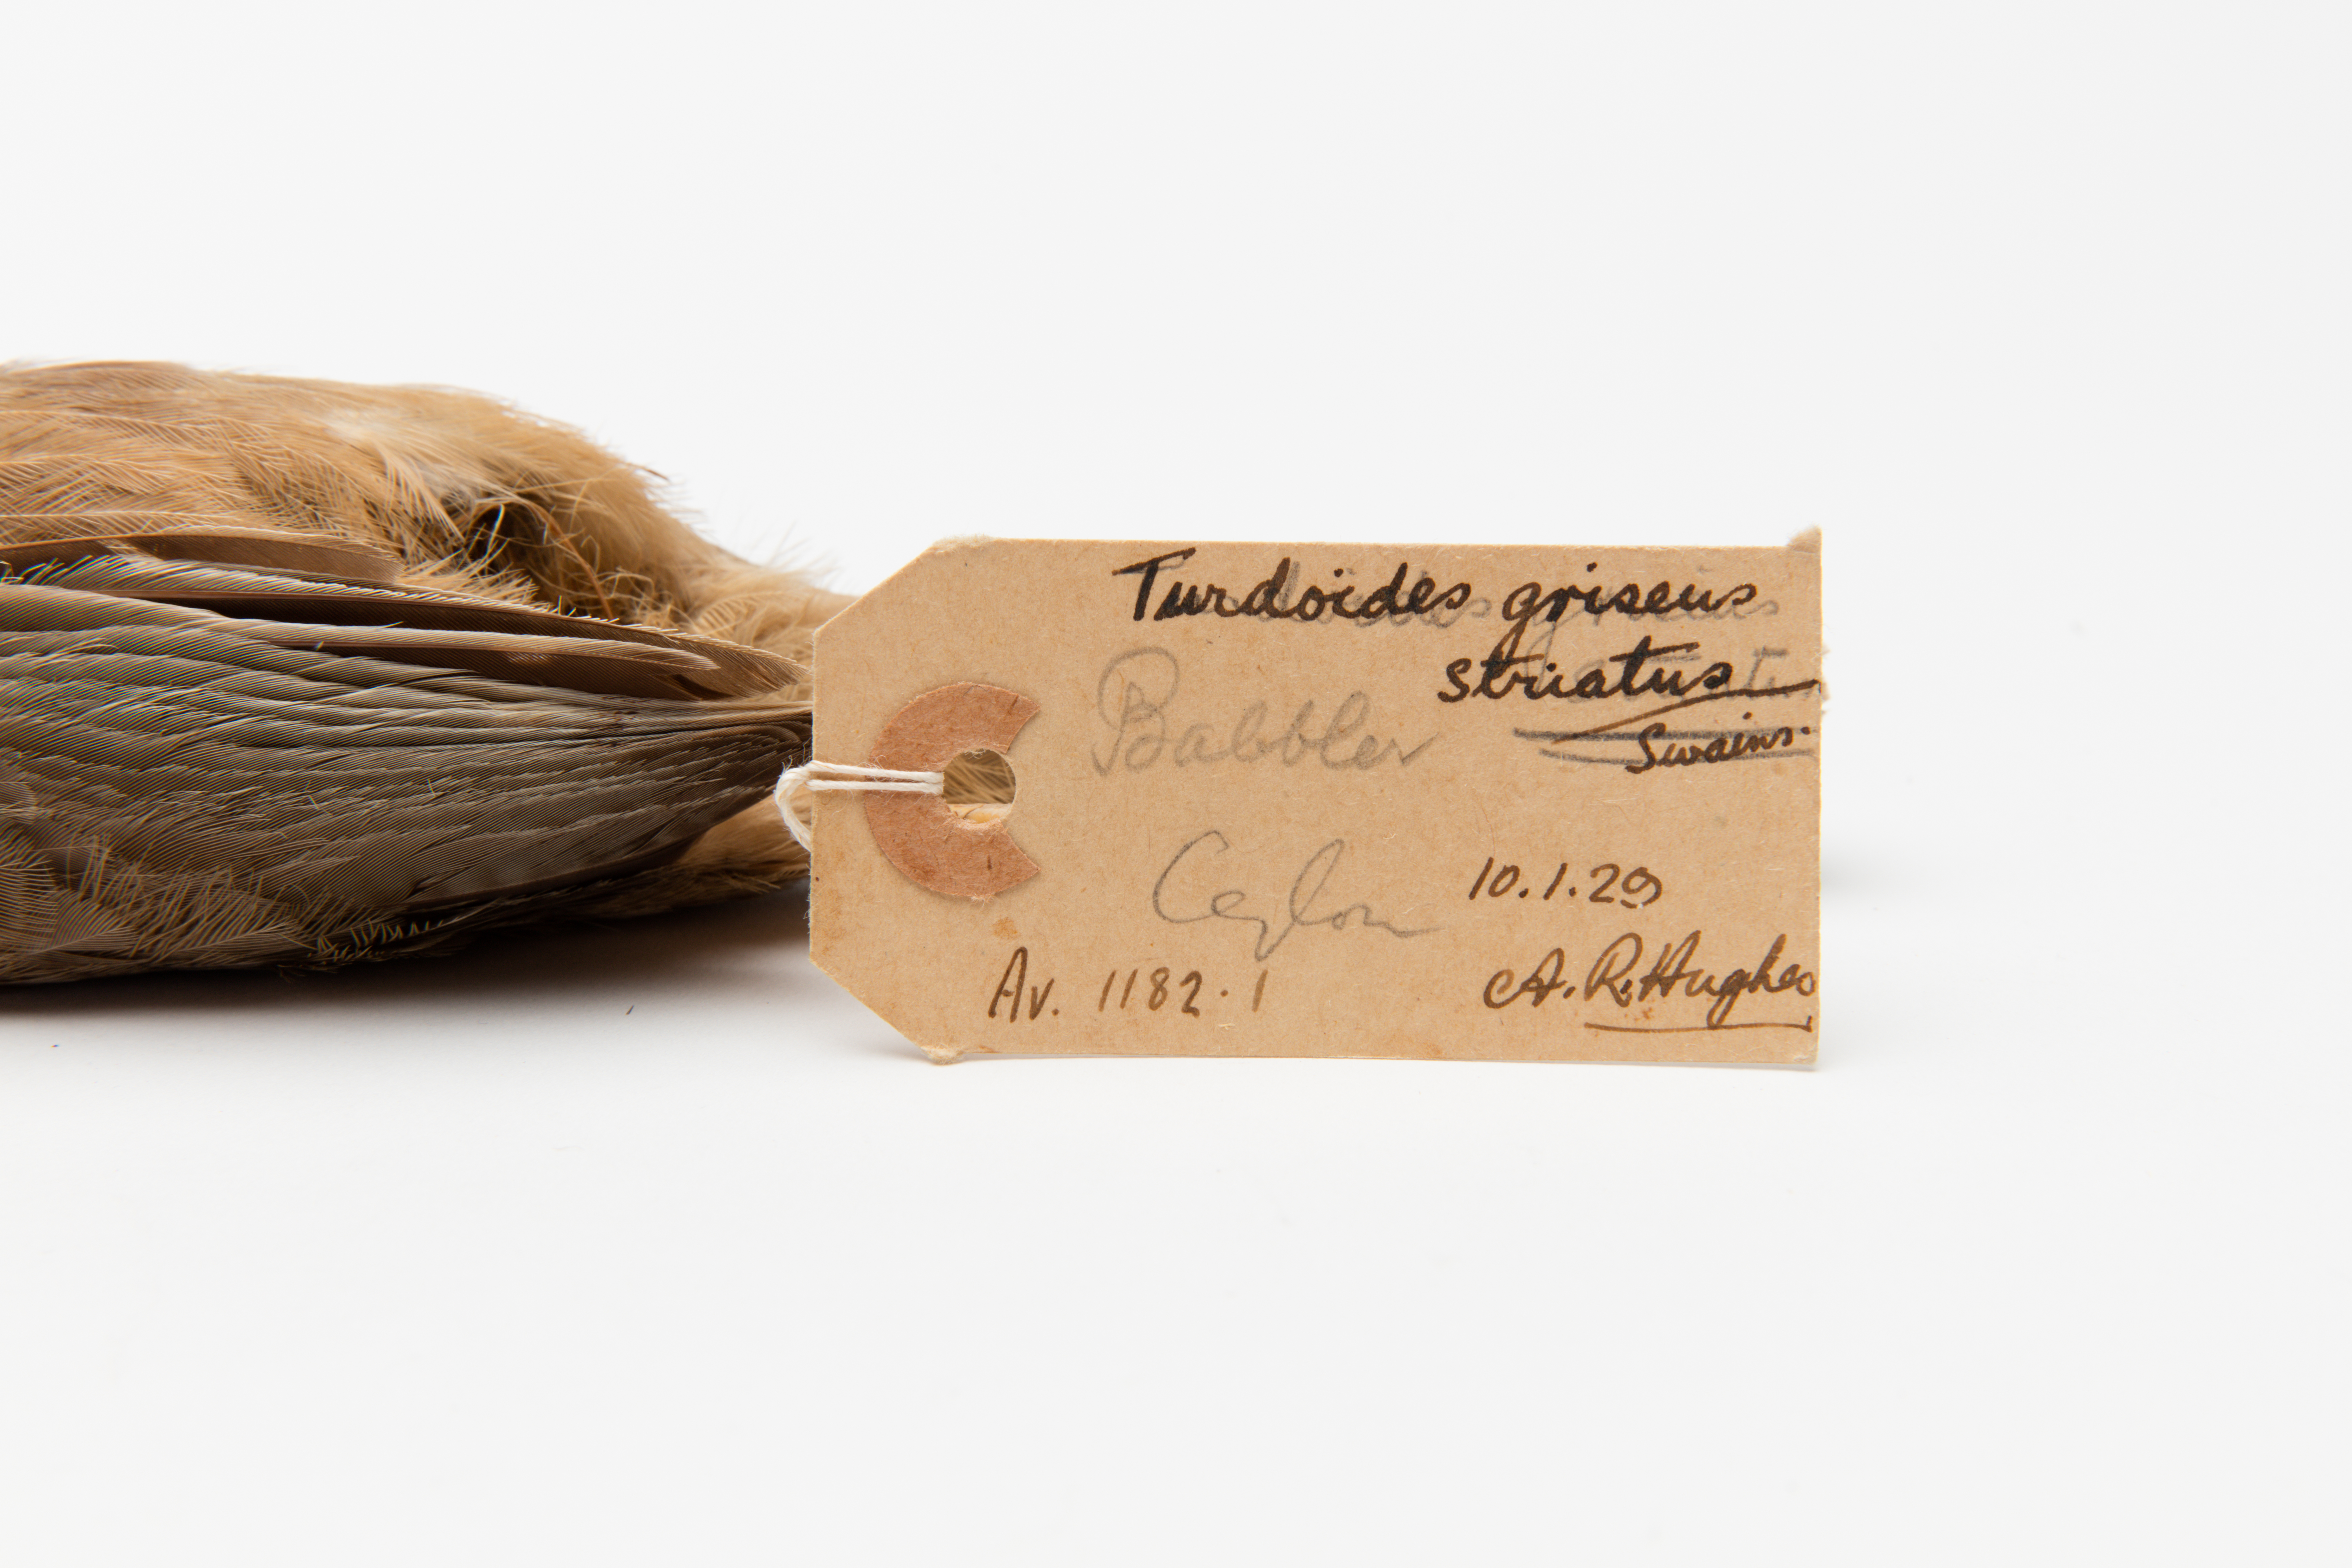 Turdoïdes griseus
striatus
Swains.
Babbler
Ceylon
10.1.29
Av. 1182.1
A. R. Hughes